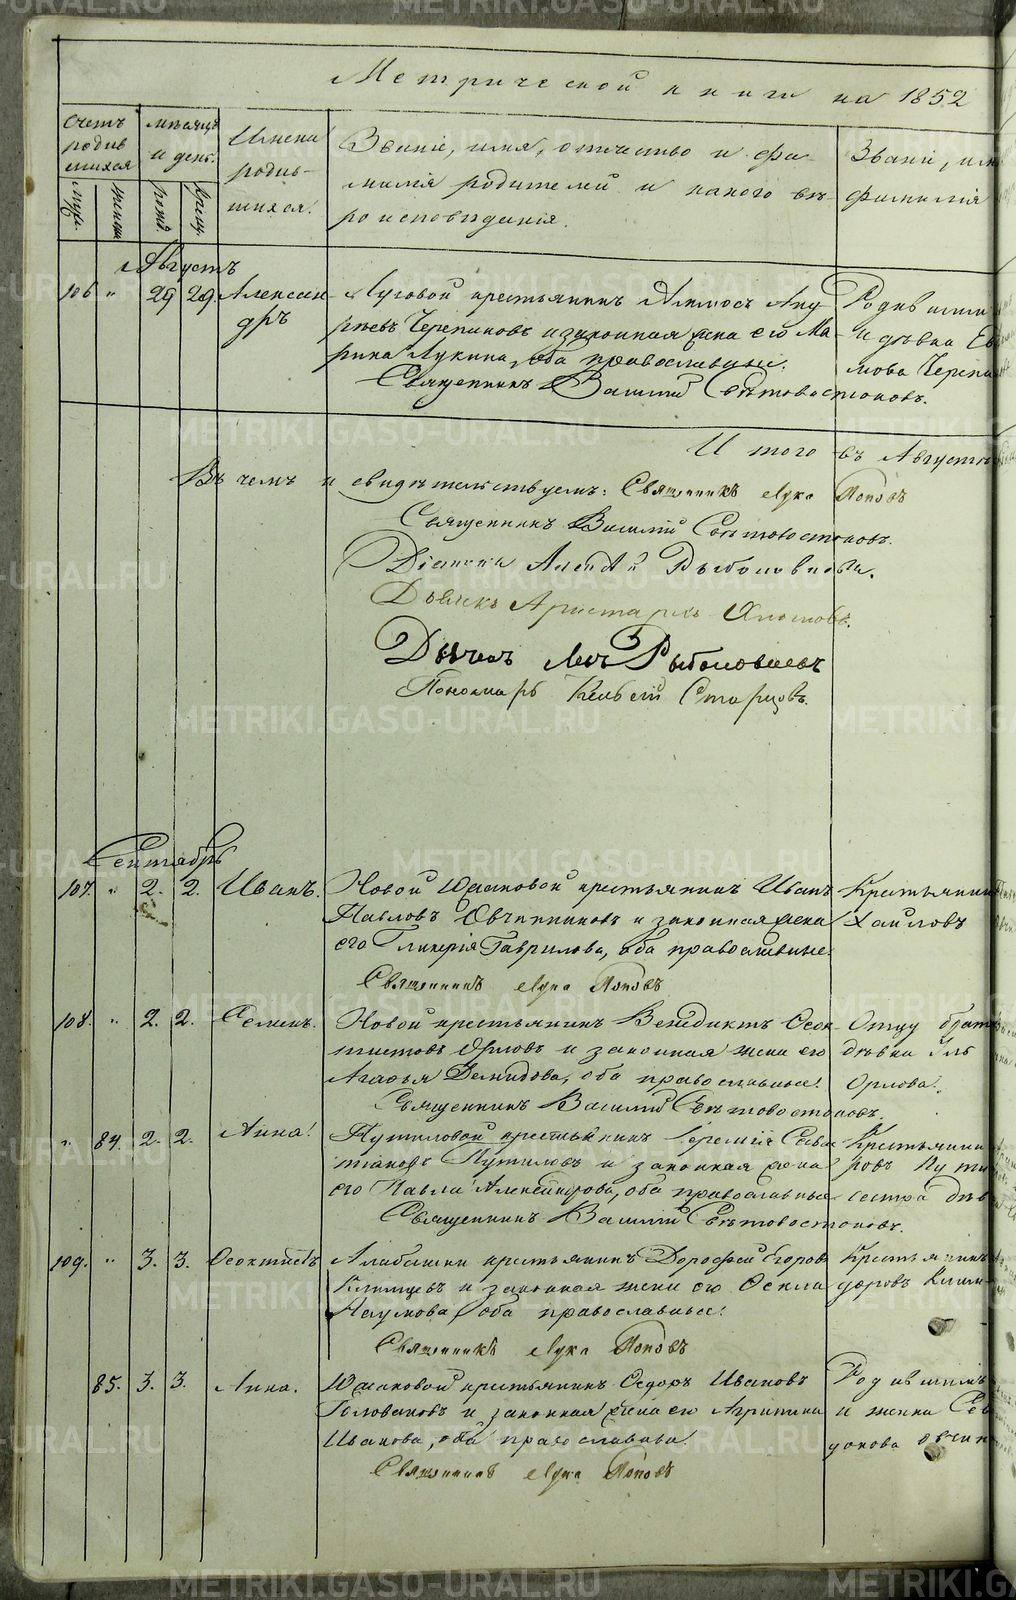 Метрической книги на 1852
Счетъ родившихся
мѣсяцъ и день.
Имена родившихся.
Званіе, имя, отчество и фа-
милія родителей и какого вѣ-
роисповѣданія.
Званіе, имя
фамилія
муж. женска рожд. крещ.
Августъ
106 " 29 29 Алексан-
дръ
Луговой крестьянинъ Андр-
еевъ Черепановъ и законная жена его Ма-
рина Лукина, оба православные.
Священникъ Василій Свѣтовостоковъ.
Родившим
и дѣвка Ев
мова Черепа
Итого въ Августѣ
Въ чемъ и свидѣтельствуемъ: Священникъ Лука Поповъ
Священникъ Василій Свѣтовостоковъ.
Діаконъ Алексѣй Рыболовлевъ.
Дьячекъ Аристархъ
Дьячек Левъ Рыболовлевъ
Пономарь Старцовъ.
Сентябрь
107. " 2. 2. Иванъ.
Новой крестьянинъ Иванъ
Павловъ Овчинниковъ и законная жена
его Гликерія Гаврилова, оба православные.
Священникъ Лука Поповъ
Крестьянин
хаиловъ
108. " 2. 2. Семенъ.
Новой крестьянинъ Венедиктъ Ѳеок-
тистовъ Орловъ и законная жена его
Агафья Демидова, оба православные.
Священникъ Василій Свѣтовостоковъ.
Отцу братъ
дѣвка Уль
Орлова.
" 84. 2. 2. Анна.
Путиловой крестьянинъ Іеремій Савас-
тіановъ Путиловъ и законная жена
его Павла Александрова, оба православные
Священникъ Василій Свѣтовостоковъ.
Крестьянин
ровъ Пути
сестра дѣв
109. " 3. 3. Ѳеоктистъ
Алабашки крестьянинъ Дороѳей Егоровъ
и законная жена его Ѳекла
Наумова, оба православные.
Священникъ Лука Поповъ
Крестьянинъ
доровъ
85. 3. 3. Анна.
крестьянинъ Ѳедоръ Ивановъ
Головановъ и законная жена его Агрипина
Иванова, оба православны.
Священникъ Лука Поповъ
Родившимъ
и женка
METRIKI.GASO-URAL.RU